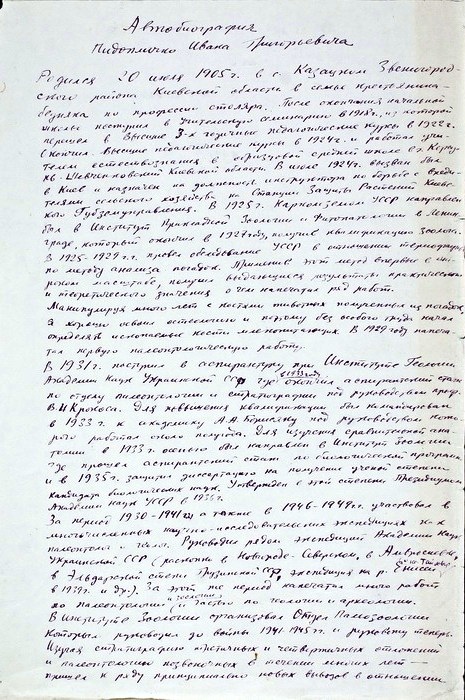 Автобиография
Пидопличко Ивана Григорьевича
Родился 20 июля 1905 г. в с. Казацком Звенигород-
ского района Киевской области в семье крестьянина-
бедняка по профессии столяра. После окончания начальной
школы поступил в учительскую семинарию в 1918 г., из которой
перешел в Высшие 3-х годичные педагогические курсы в 1922 г.
Окончил высшие педагогические курсы в 1924 г. и работал учи-
телем естествознания в образцовой средней школе в г. Корсу-
не-Шевченковский Киевской области. В июле 1924 г. вызван был
в Киев и назначен на должность инструктора по борьбе с вреди-
телями сельского хозяйства на Станции Защиты Растений Киевс-
кого Губземуправления. В 1925 г. Наркомземом УССР направлен
был в Институт Прикладной Зоологии и Фитопатологии в Ленин-
граде, который окончил в 1927 году, получив квалификацию зоолога.
В 1925-1929 г.г. провел обследование УССР в отношении териофауны
по методу анализа погадок. Применив этот метод впервые в ши-
роком масштабе, получил выдающиеся результаты практического
и теоретического значения о чем напечатал ряд работ.
Манипулируя много лет с костями животных полученных из погадок,
я хорошо освоил остеологию и поэтому без особого труда начал
определять ископаемые кости млекопитающих. В 1929 году напеча-
тал первую палеонтологическую работу.
В 1931 г. поступил в аспирантуру при Институте Геологии
Академии Наук Украинской ССР где в 1933 году окончил аспирантский стаж
по отделу палеонтологии и стратиграфии под руководством проф.
В.И. Крокоса. Для повышения квалификации был командирован
в 1933 г. к академику А.А. Борисяку под руководством кото-
рого работал около полугода. Для изучения сравнительной ана-
томии в 1933 г. осенью был направлен в Институт Зоологии
где прошел аспирантский стаж по биологической программе
и в 1935 г. защитил диссертацию на получение ученой степени
кандидата биологических наук. Утвержден в этой степени Президиумом
Академии Наук УССР в 1935 г.
За период 1930-1941 г.г. а также в 1946-1949 г.г. участвовал в
многочисленных научно-исследовательских экспедициях как
палеонтолог и геолог. Руководил рядом экспедиций Академии Наук
Украинской ССР (раскопки в Новгороде-Северском, в Амвросиевке,
в Эльдарской степи Грузинской ССР, экспедиция на р. Енисей
в 1939 г. и др.). За этот же период напечатал много работ
по палеонтологии, зоологии и частью по геологии и археологии.
В Институте Зоологии организовал Отдел Палеозоологии
которым руководил до войны 1941-1945 г.г. и руковожу теперь.
Изучая стратиграфию третичных и четвертичных отложений
и палеонтологию позвоночных в течении многих лет —
пришел к ряду принципиально новых выводов в отношении